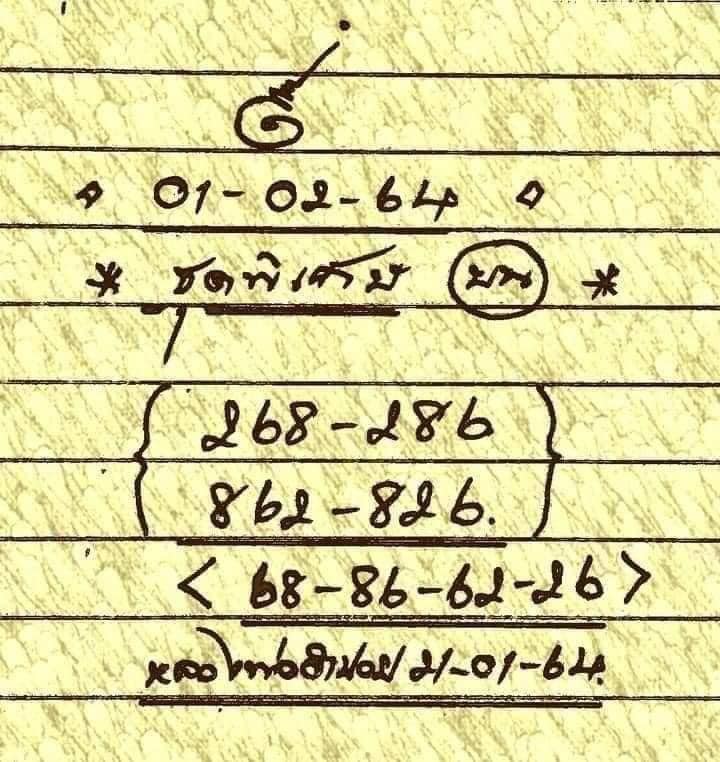 01-02-64
* ชุดพิเศษ บน *
268-286
862-826.
< 68-86-62-26 >
21-01-64.